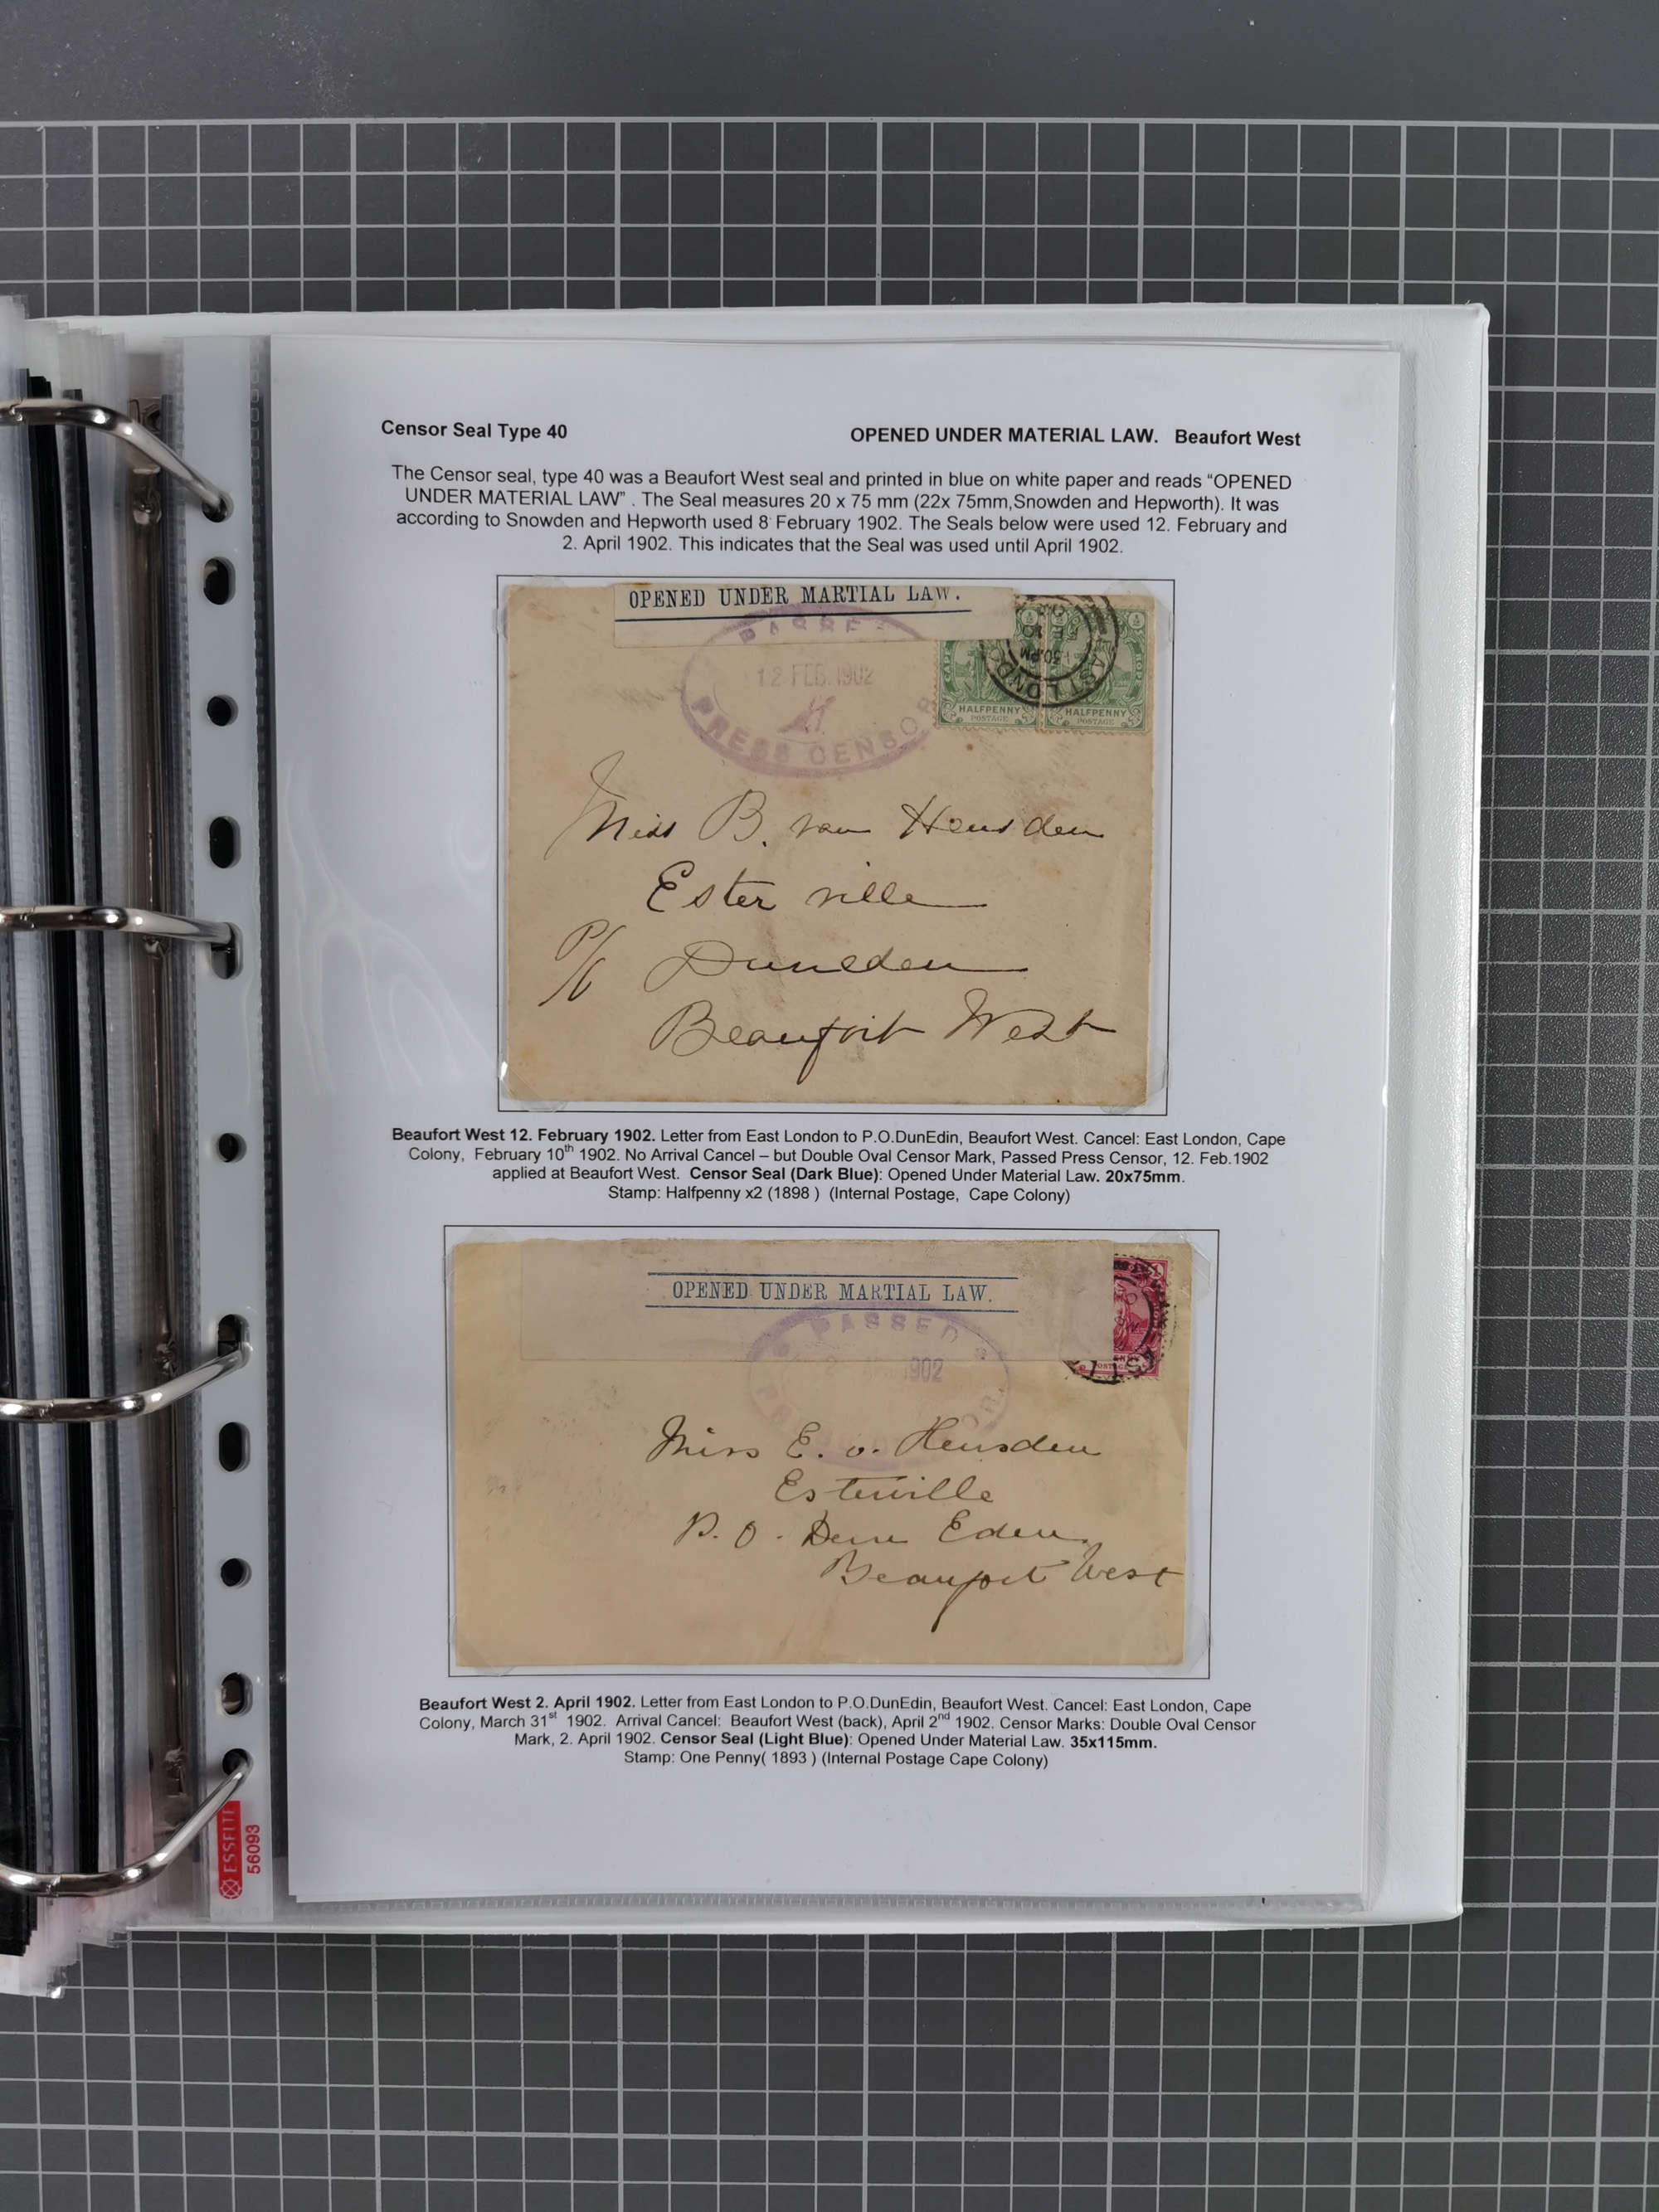 Censor Seal Type 40 OPENED UNDER MATERIAL LAW. Beaufort West
The Censor seal, type 40 was a Beaufort West seal and printed in blue on white paper and reads “OPENED
UNDER MATERIAL LAW” . The Seal measures 20 x 75 mm (22x 75mm,Snowden and Hepworth). It was
according to Snowden and Hepworth used 8 February 1902. The Seals below were used 12. February and
2. April 1902. This indicates that the Seal was used until April 1902.
OPENED UNDER MARTIAL LAW.
PASSED
12 FEB. 1902
PRESS CENSOR
EAST LONDON
HALFPENNY HALFPENNY
POSTAGE POSTAGE
Miss B. van Heusden
Ester ville
P/O Duneden
Beaufort West
Beaufort West 12. February 1902. Letter from East London to P.O.DunEdin, Beaufort West. Cancel: East London, Cape
Colony, February 10th 1902. No Arrival Cancel – but Double Oval Censor Mark, Passed Press Censor, 12. Feb.1902
applied at Beaufort West. Censor Seal (Dark Blue): Opened Under Material Law. 20x75mm.
Stamp: Halfpenny x2 (1898 ) (Internal Postage, Cape Colony)
OPENED UNDER MARTIAL LAW.
PASSED
1902
Miss E. v. Heusden
Esterville
P. O. Dun Eden
Beaufort West
Beaufort West 2. April 1902. Letter from East London to P.O.DunEdin, Beaufort West. Cancel: East London, Cape
Colony, March 31st 1902. Arrival Cancel: Beaufort West (back), April 2nd 1902. Censor Marks: Double Oval Censor
Mark, 2. April 1902. Censor Seal (Light Blue): Opened Under Material Law. 35x115mm.
Stamp: One Penny( 1893 ) (Internal Postage Cape Colony)
ESSELTE
56093